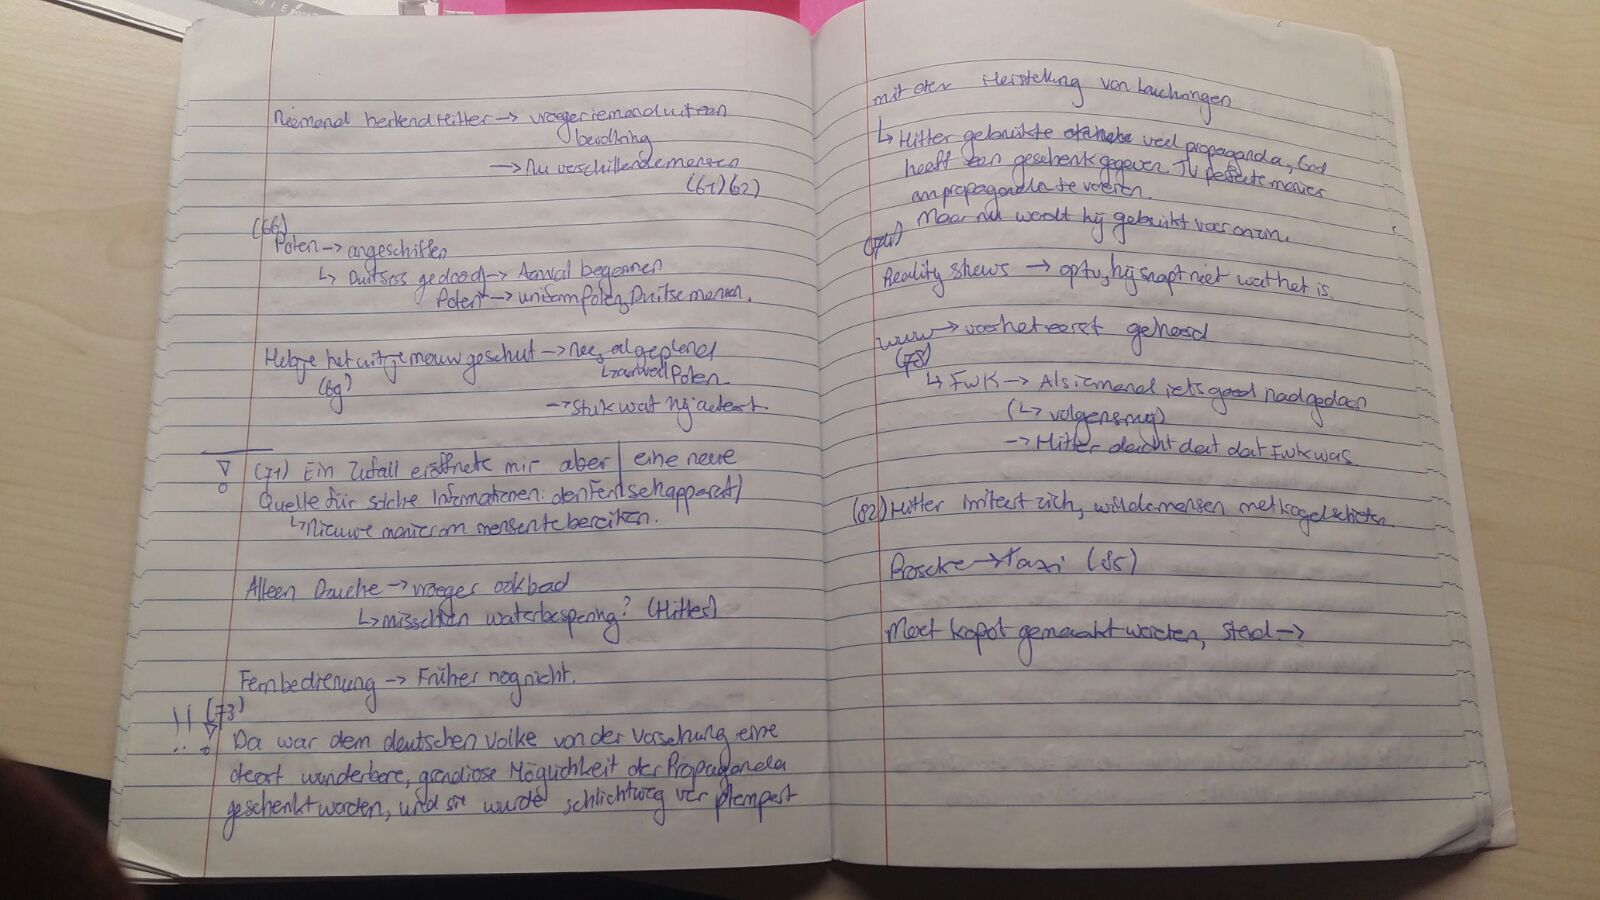 Niemand herkend Hitler → vroeger iemand uit een
bevolking
→ Nu verschillende mensen
(61)(62)
(66)
Polen → angeschiffen
↳ Duitsers gedood → Aanval begonnen
Polen → uniform Polen, Duitse mensen.
Heb je het uit je mouw geschut → nee, al gepland
(69)
↳ aanval Polen
→ stuk wat hij acteert.
(71) Ein Zufall eröffnete mir aber | eine neue
Quelle für solche Informationen: den Fernsehapparat /
↳ Nieuwe manier om mensen te bereiken.
Alleen Douche → vroeger ook bad
↳ misschien waterbesparing? (Hitler)
Fernbedienung → Früher nog nicht.
!! (73)
Da war dem deutschen Volke von der Vorsehung eine
derart wunderbare, grandiose Möglichkeit der Propaganda
geschenkt worden, und sie wurde schlichtweg verplempert
mit der Herstellung von Lauchringen
↳ Hitler gebruikte veel propaganda, God
heeft een geschenk gegeven. TV perfecte manier
om propaganda te voeren.
Maar nu wordt hij gebruikt voor onzin.
(74)
Reality shows → op tv, hij snapt niet wat het is.
www → voor het eerst gehoord
(78)
↳ FWK → Als iemand iets goed had gedaan
(↳ volgens mij)
→ Hitler dacht dat dat FWK was
(82) Hitler irriteert zich, wilde mensen met kogel schieten.
Porsche → taxi (85)
Moet kapot gemaakt worden, stad →